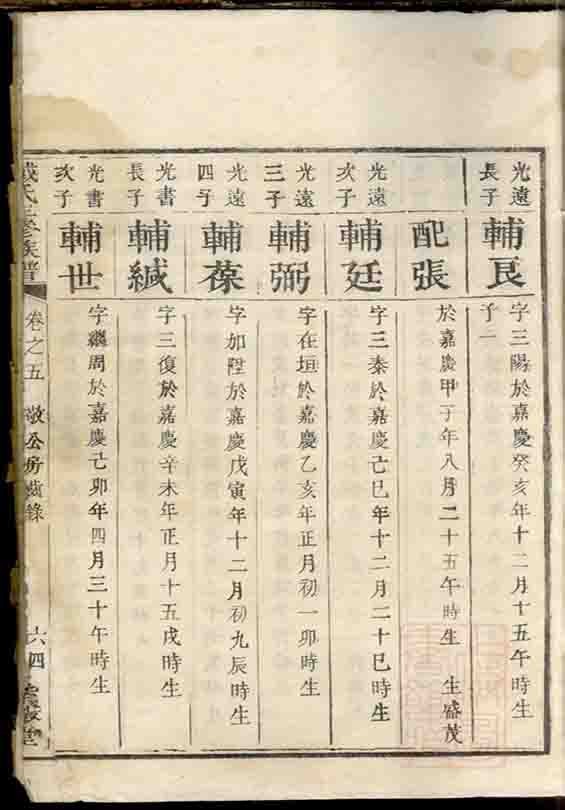 光遠
長子
輔良
字三陽於嘉慶癸亥年十二月十五午時生
子一
配張
於嘉慶甲子年八月二十五午時生 生盛茂
光遠
次子
輔廷
字三秦於嘉慶己巳年十二月二十巳時生
光遠
三子
輔弼
字在垣於嘉慶乙亥年正月初一卯時生
光遠
四子
輔葆
字加陞於嘉慶戊寅年十二月初九辰時生
光書
長子
輔緘
字三復於嘉慶辛未年正月十五戌時生
光書
次子
輔世
字繼周於嘉慶己卯年四月三十午時生
戴氏三修族譜
卷之五 敬公房齒錄
六四